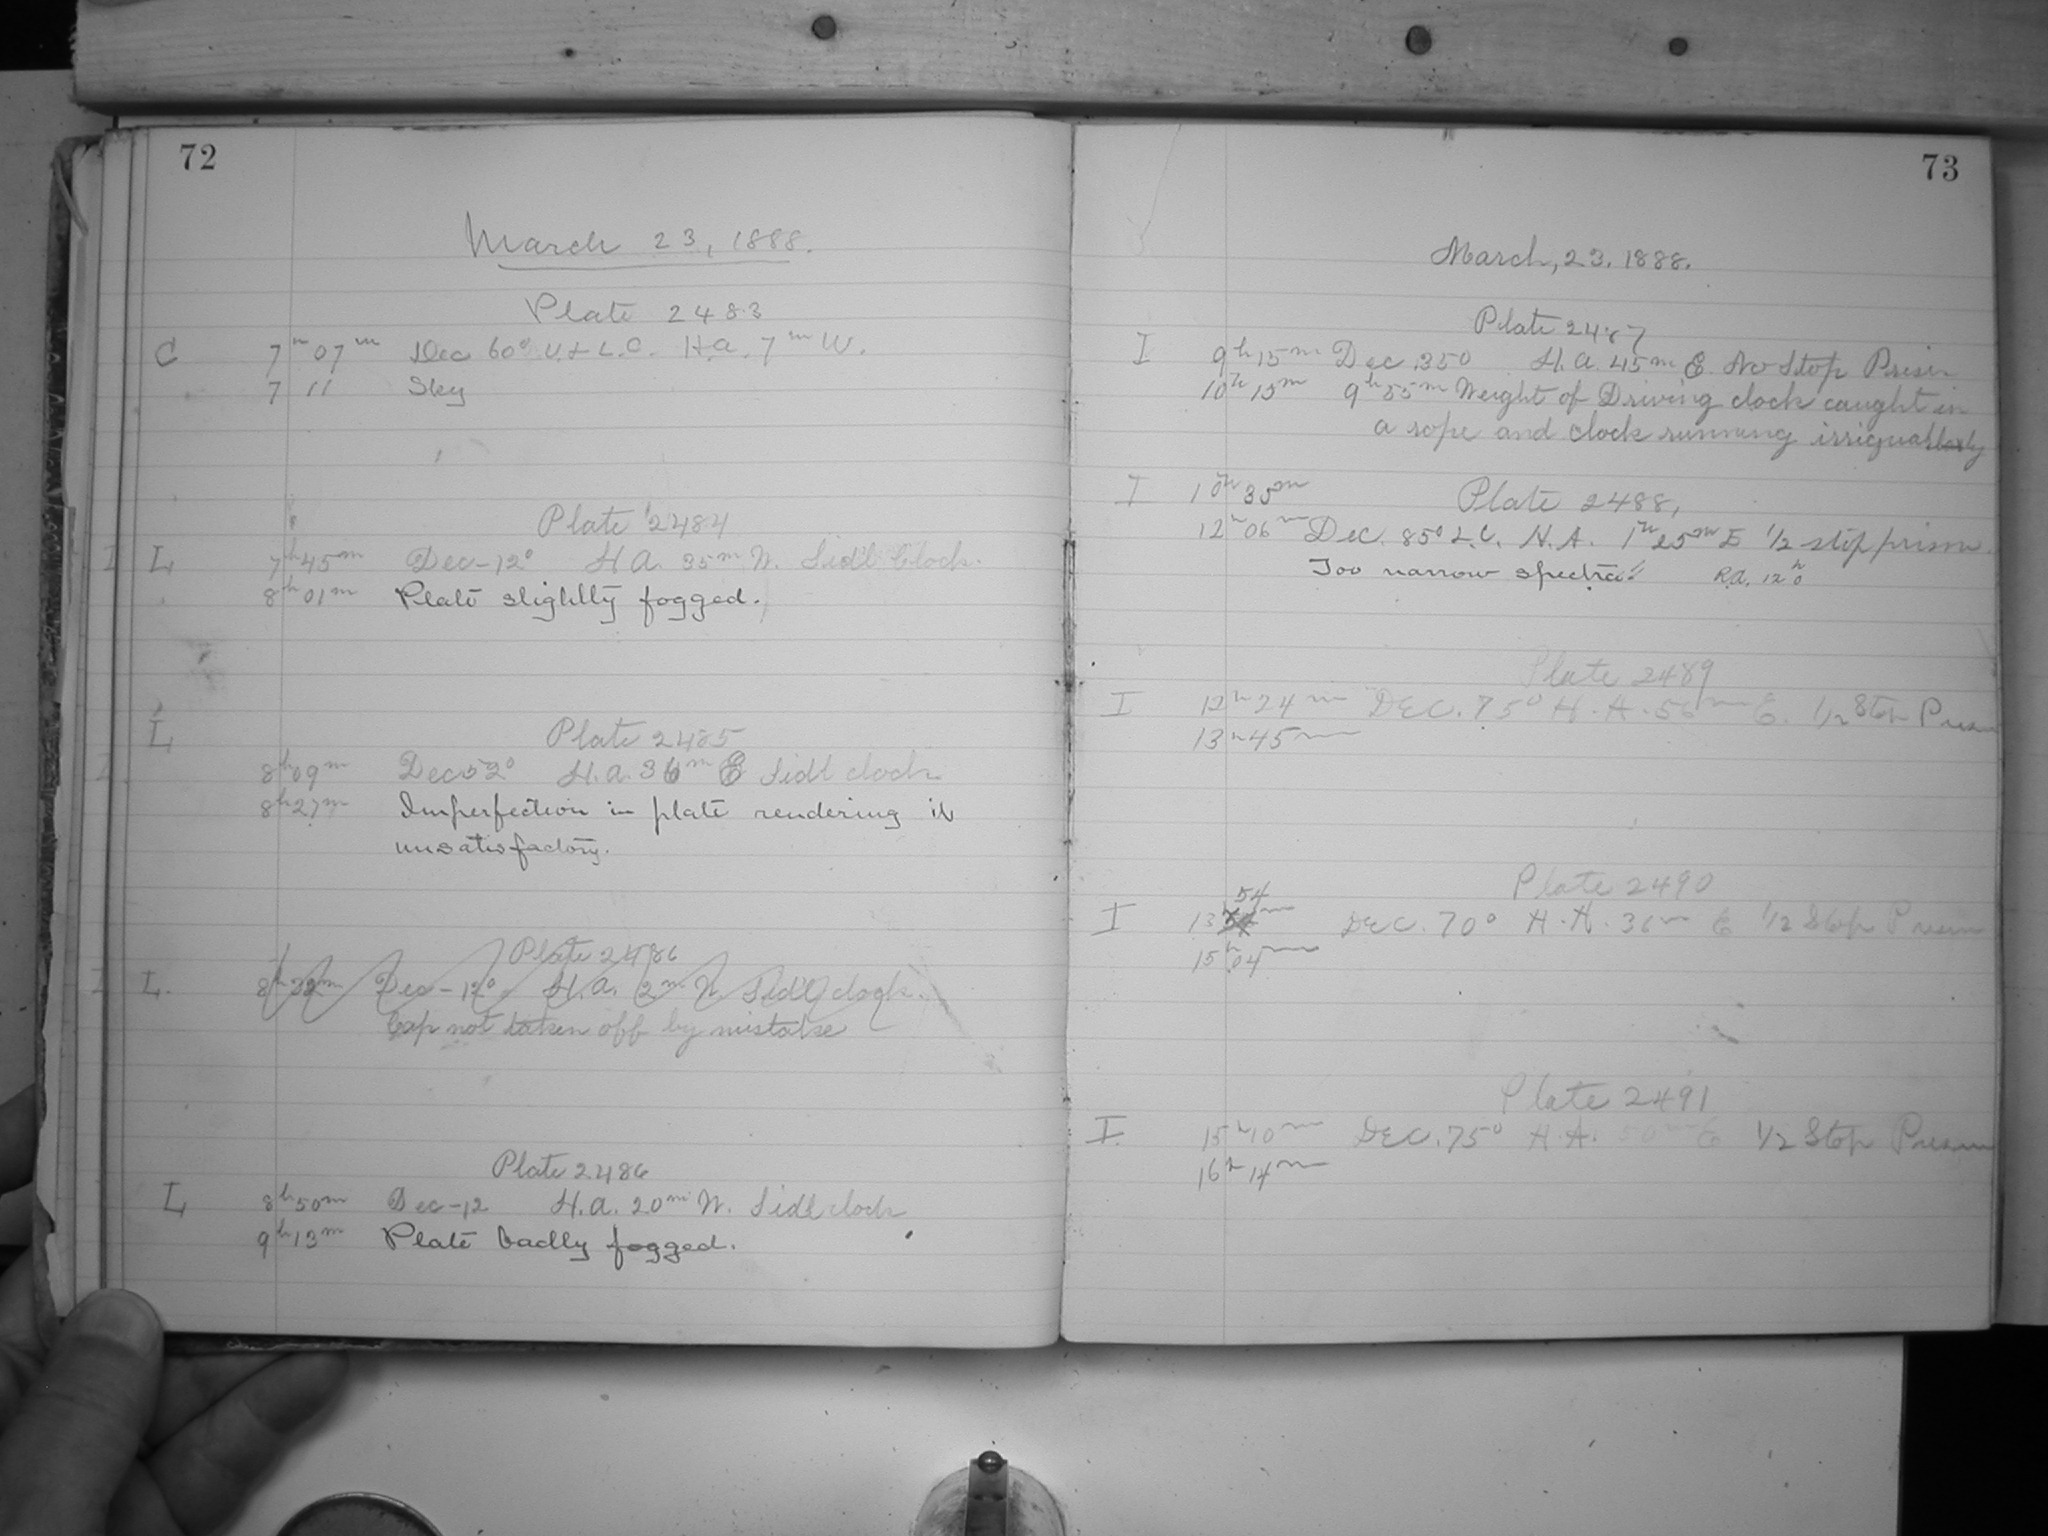 72
March 23, 1888.
Plate 2483
C 7h 07m Dec 60° U. & L.C. H.a. 7m W.
7 11 Sky
Plate 2484
I L 7h 45m Dec -12° H A. 35m W. Sid'l Clock.
8h 01m Plate slightly fogged.
L Plate 2485
8h 09m Dec 52° H.a. 36m E Sidl clock
8h 27m Imperfection in plate rendering it
unsatisfactory.
Plate 2486
I L. 8h 32m Dec -12° H.a. 2m W. Sid'l clock.
Cap not taken off by mistake
Plate 2486
L 8h 50m Dec -12 H.a. 20m W. Sidl clock
9h 13m Plate badly fogged.
73
March, 23. 1888.
Plate 2487
I 9h 15m Dec. 35° H.a. 45m E. No Stop Prism
10h 15m 9h 55m Weight of Driving clock caught in
a rope and clock running
I 10h 35m Plate 2488,
12h 06m Dec. 85° L.C. H.A. 1h 25m E 1/2 stop prism.
Too narrow spectra! R.a. 12h 0
Plate 2489
I 12h 24m DEC. 75° H.A. 56m E. 1/2 Stop Prism
13h 45m
Plate 2490
54
I 13 m DEC. 70° H.A. 36m E 1/2 Stop Prism
15h 04m
Plate 2491
I. 15h 10m DEC. 75° H.A. 50m E 1/2 Stop Prism
16h 14m